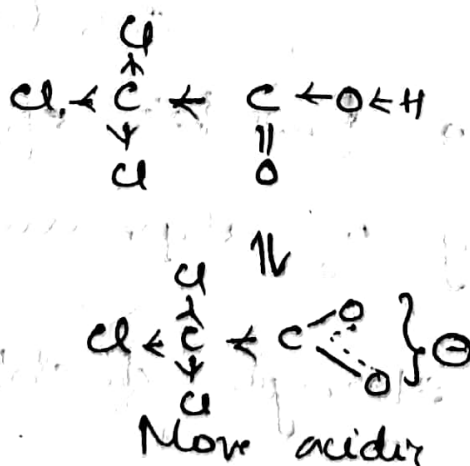 Cl
↑
Cl ← C ← C ← O ← H
↓ ||
Cl O
⇌
Cl
↑
Cl ← C ← C O } ⊖
↓ O
Cl
More acidic